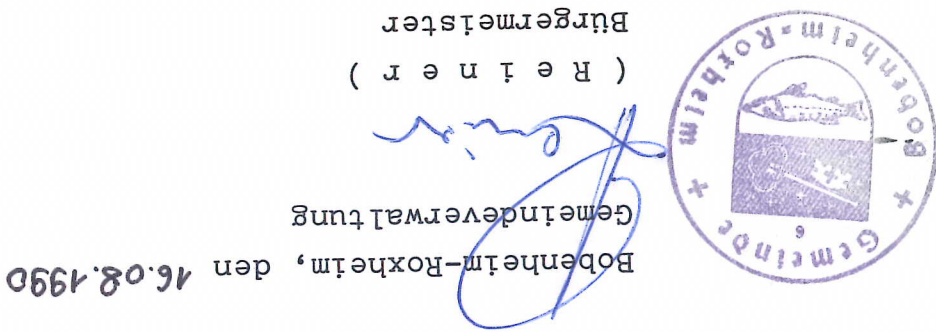 Bobenheim-Roxheim, den 16.08.1990
Gemeindeverwaltung
( R e i n e r )
Bürgermeister
Gemeinde + Bobenheim-Roxheim +
6